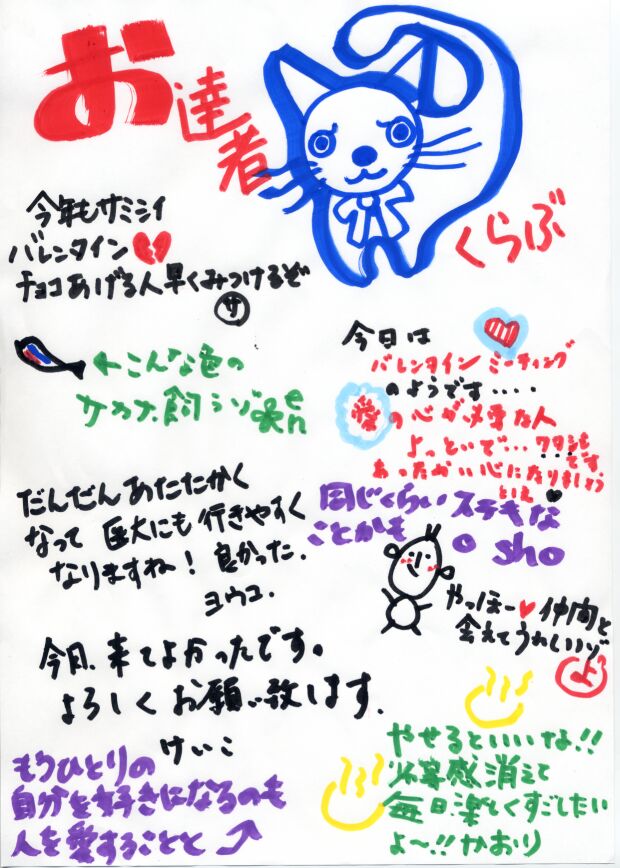 お達者
くらぶ
今年もサミシイ
バレンタイン
チョコあげる人早くみつけるぞ
サ
←こんな色の
サカナ飼うゾ
en
今日は
バレンタインミーティング
のようです‥‥
愛の心が必要な人
よっといで…ワタシも
です。
あったかい心になりましょう
といえ
だんだんあたたかく
なって 医大にも行きやすく
なりますね！良かった。
ヨウコ.
同じくらいステキな
ことかも
o sho
やっほー 仲間と
会えてうれしいゾ
よ
今日、来てよかったです。
よろしくお願い致します.
けいこ
やせるといいな!!
不幸感消えて
毎日楽しくすごしたい
よ〜!!かおり
もうひとりの
自分を好きになるのも
人を愛することと